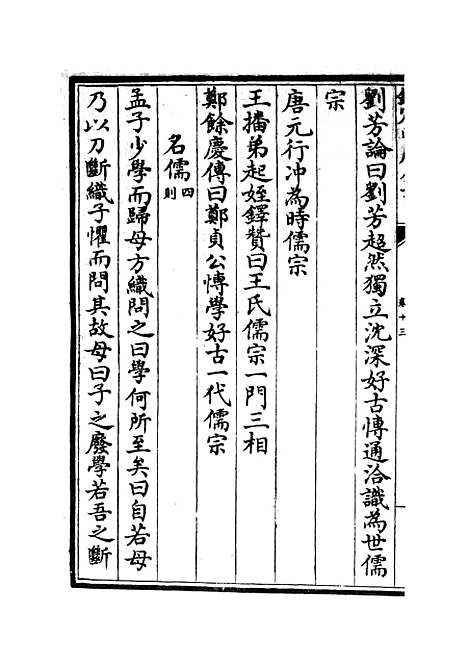 卷十三
劉芳論曰劉芳超然獨立沈深好古愽通洽識為世儒
宗
唐元行冲為時儒宗
王播弟起姪鐸贊曰王氏儒宗一門三相
鄭餘慶傳曰鄭貞公愽學好古一代儒宗
名儒四則
孟子少學而歸母方織問之曰學何所至矣曰自若母
乃以刀斷織子懼而問其故母曰子之廢學若吾之斷